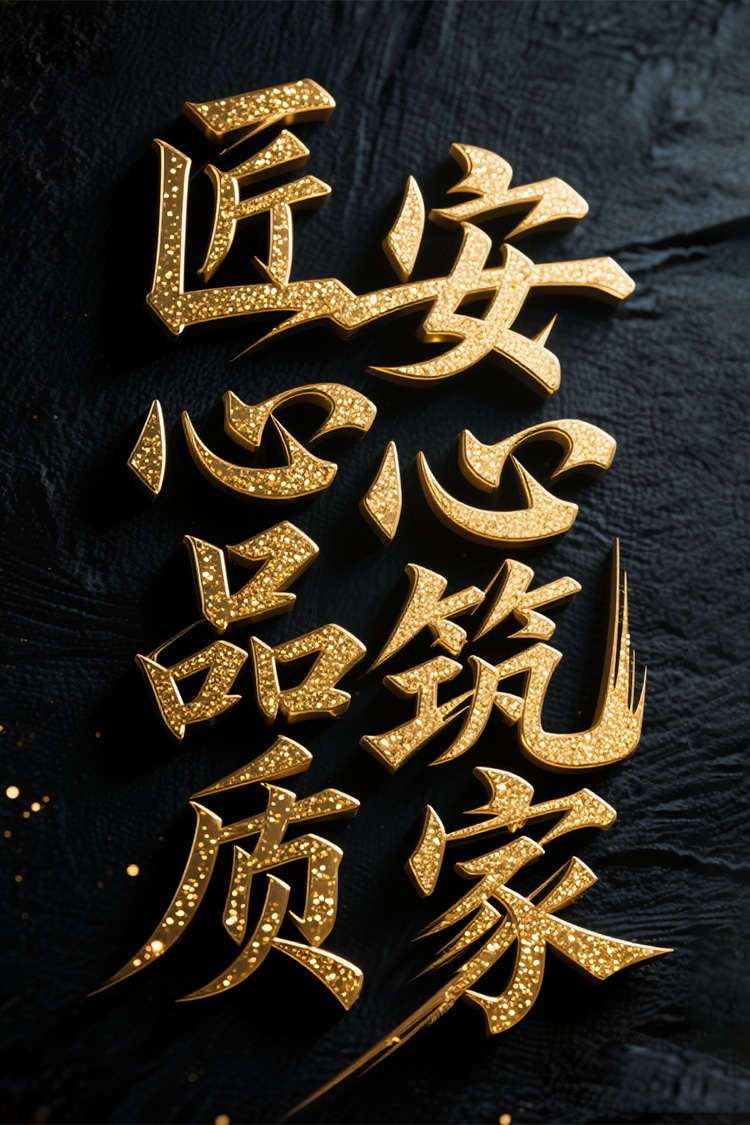 匠心品质
安心筑家